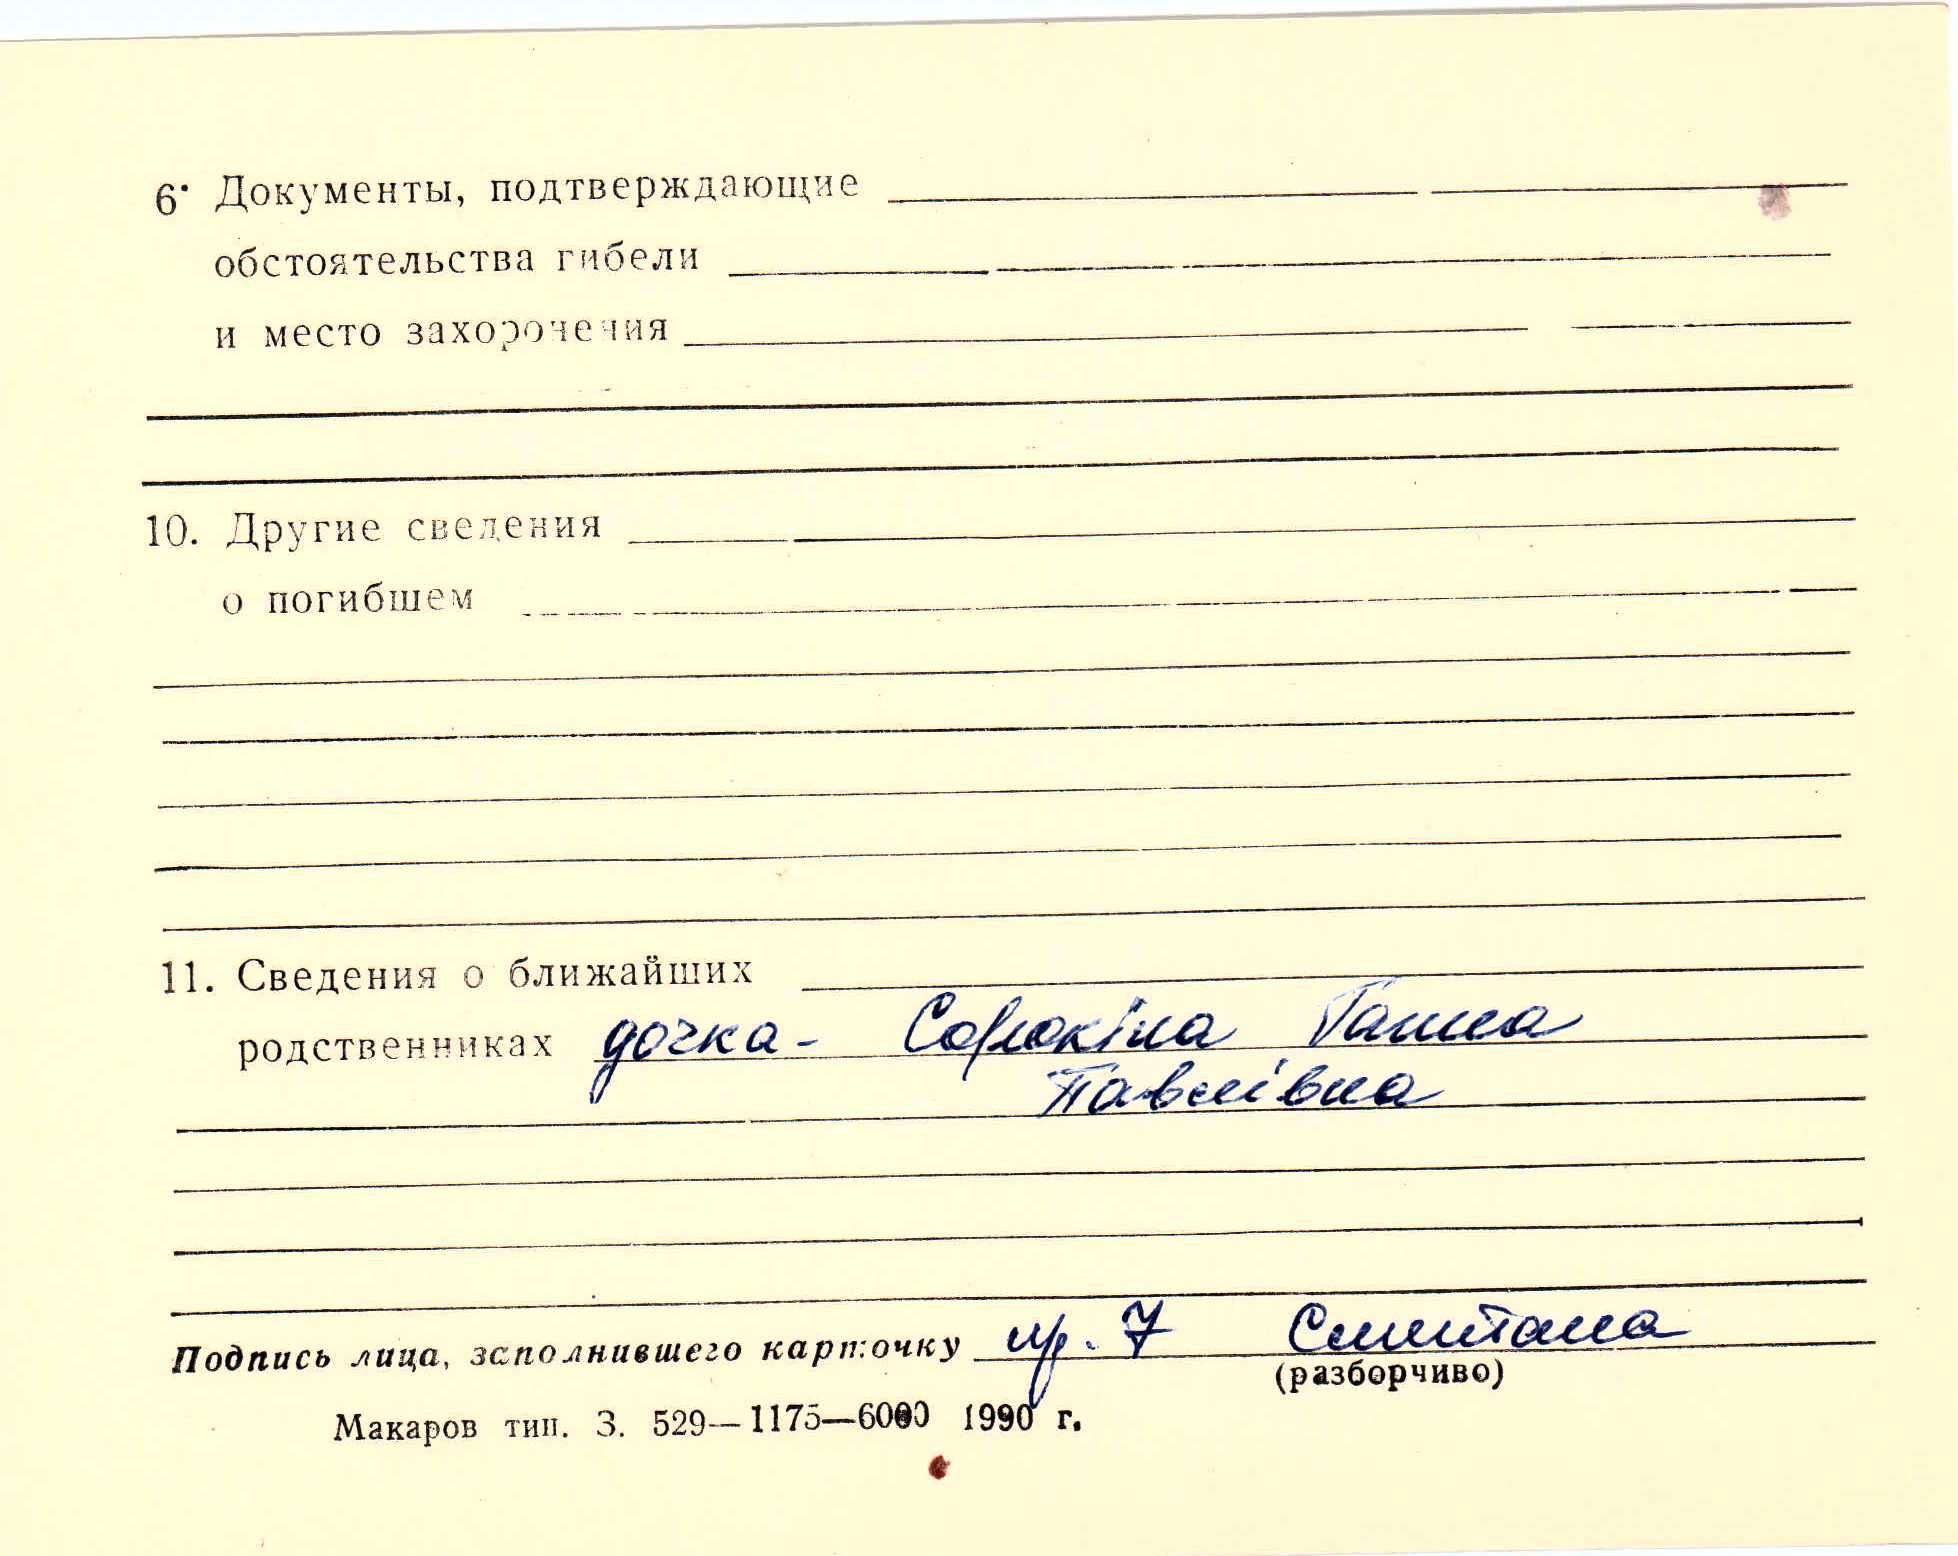 6. Документы, подтверждающие
обстоятельства гибели
и место захоронения
10. Другие сведения
о погибшем
11. Сведения о ближайших
родственниках дочка - Сорокіна Ганна
Павлівна
Подпись лица, заполнившего карточку Сметана
(разборчиво)
Макаров тип. З. 529—1175—6000 1990 г.